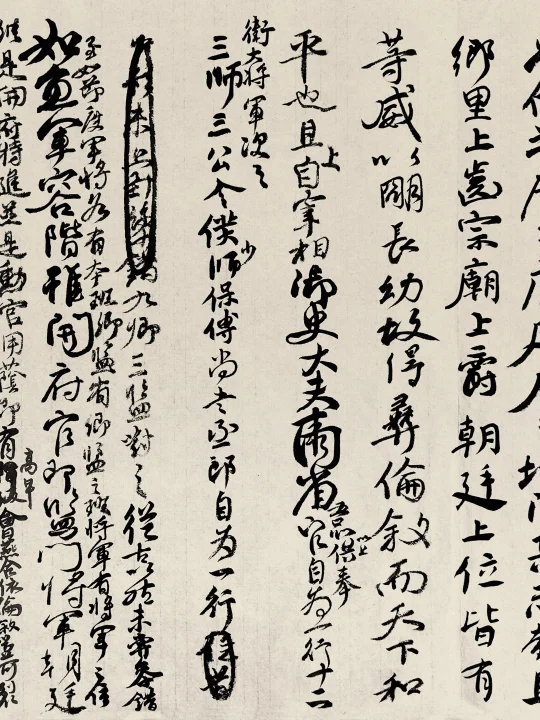 鄉里上齒宗廟上爵朝廷上位皆有
等威以明長幼故得彝倫敘而天下和
平也且上自宰相御史大夫兩省五品以上供奉官自為一行十二
衛大將軍次之
三師三公令僕少師保傅尚書郎自為一行
九卿三監對之從古以然未嘗參錯
至如節度軍將各有本班卿監有卿監之班將軍有將軍之位
如魚軍容階雖開府官即監門將軍朝廷
縱是開府特進並是勳官用蔭即有高卑會讌合依倫敘豈可裂